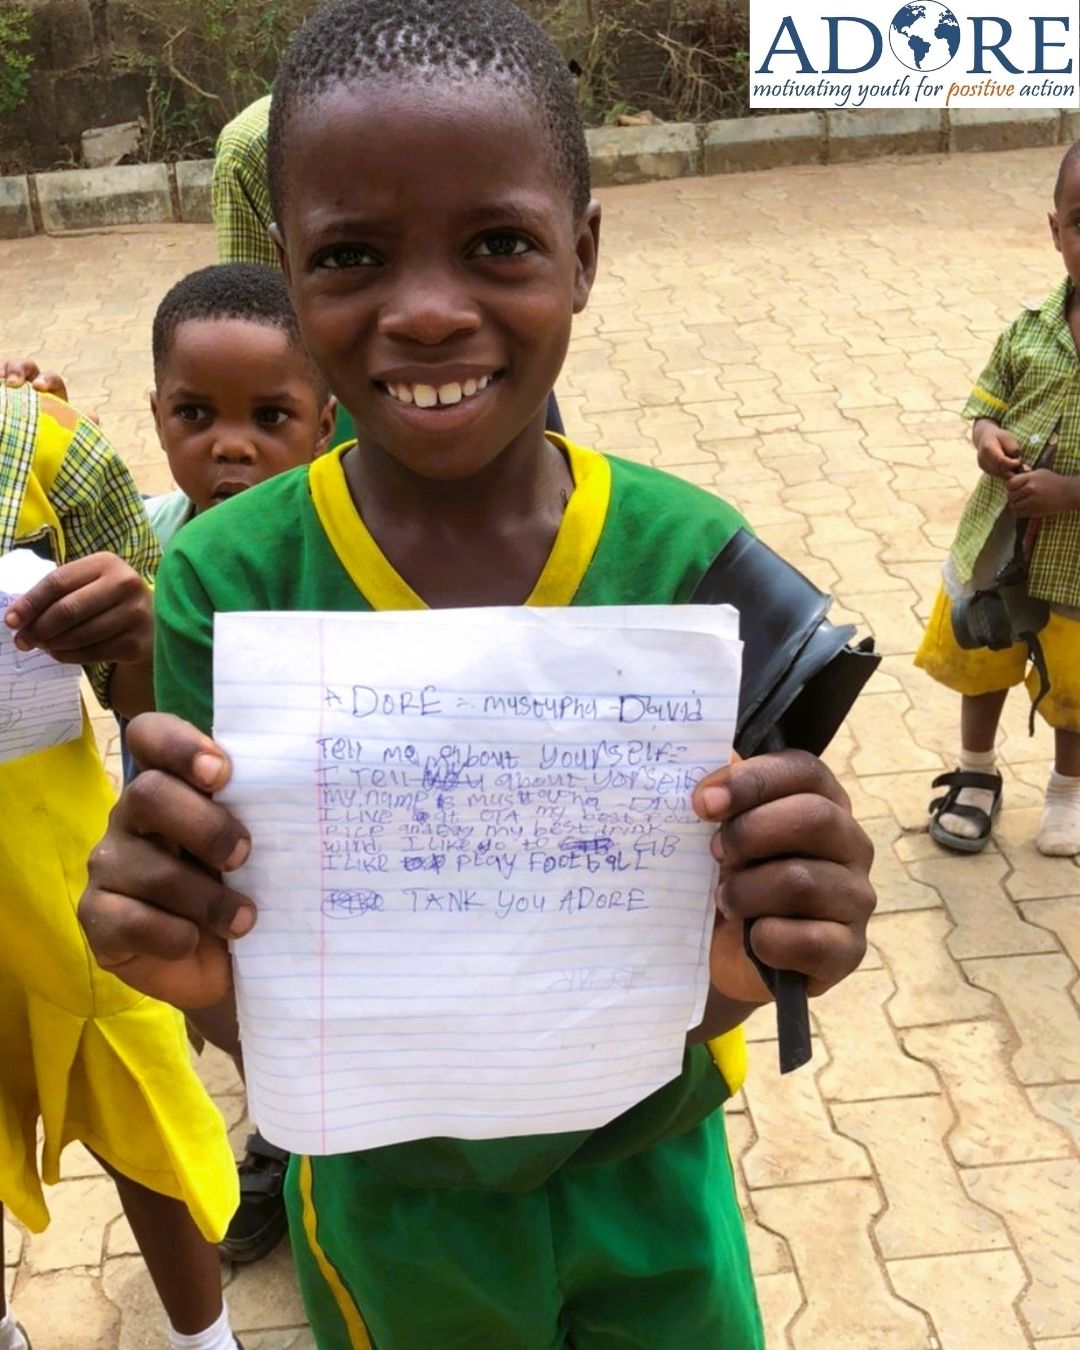 ADORE
motivating youth for positive action
ADORE = mustupha - David
Tell me about yourself=
I Tell u about yorself
my name is mustapha - DAVI
I LIVE at OTA my best Foo
RICE and Egg my best drink
wind. I Like go to
I LIKE PLAY FOOTBALL
TANK YOU ADORE